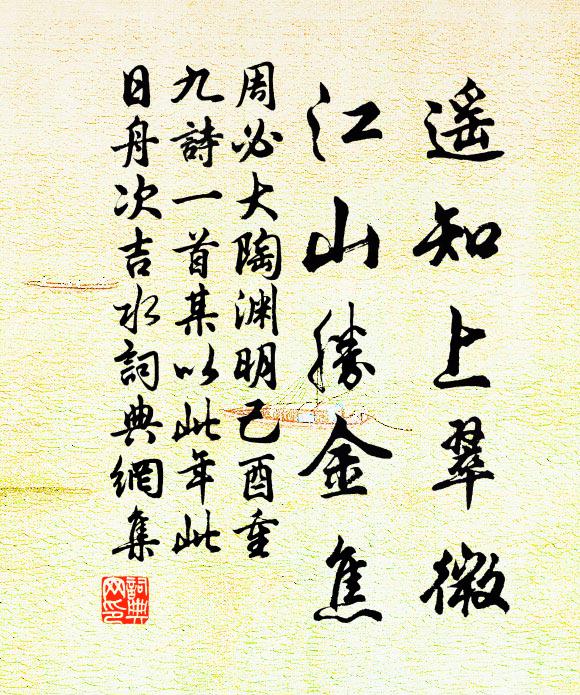 遥知上翠微
江山勝金焦
周必大陶淵明己酉重
九詩一首某以此年此
日舟次吉水詞典網集
詞典
网印